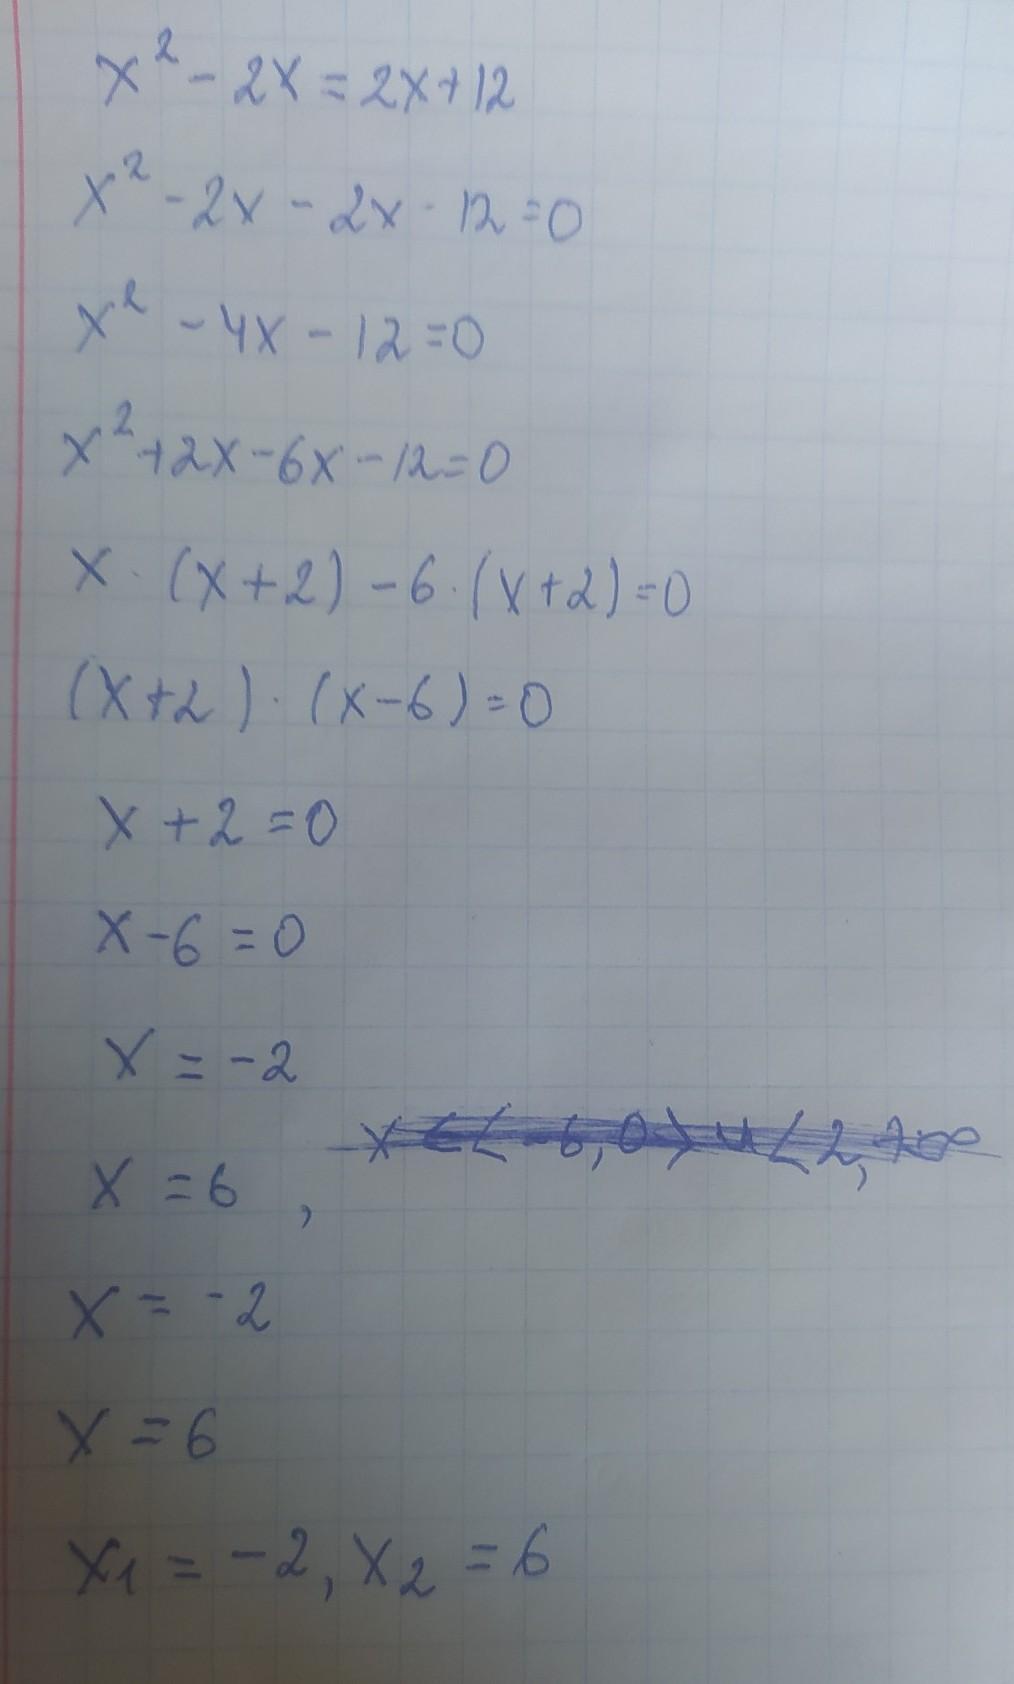 x² - 2x = 2x + 12
x² - 2x - 2x - 12 = 0
x² - 4x - 12 = 0
x² + 2x - 6x - 12 = 0
x · (x + 2) - 6 · (x + 2) = 0
(x + 2) · (x - 6) = 0
x + 2 = 0
x - 6 = 0
x = -2
x ∈ ⟨-6, 0⟩ ∪ ⟨2, +∞
x = 6 ,
x = -2
x = 6
x₁ = -2, x₂ = 6